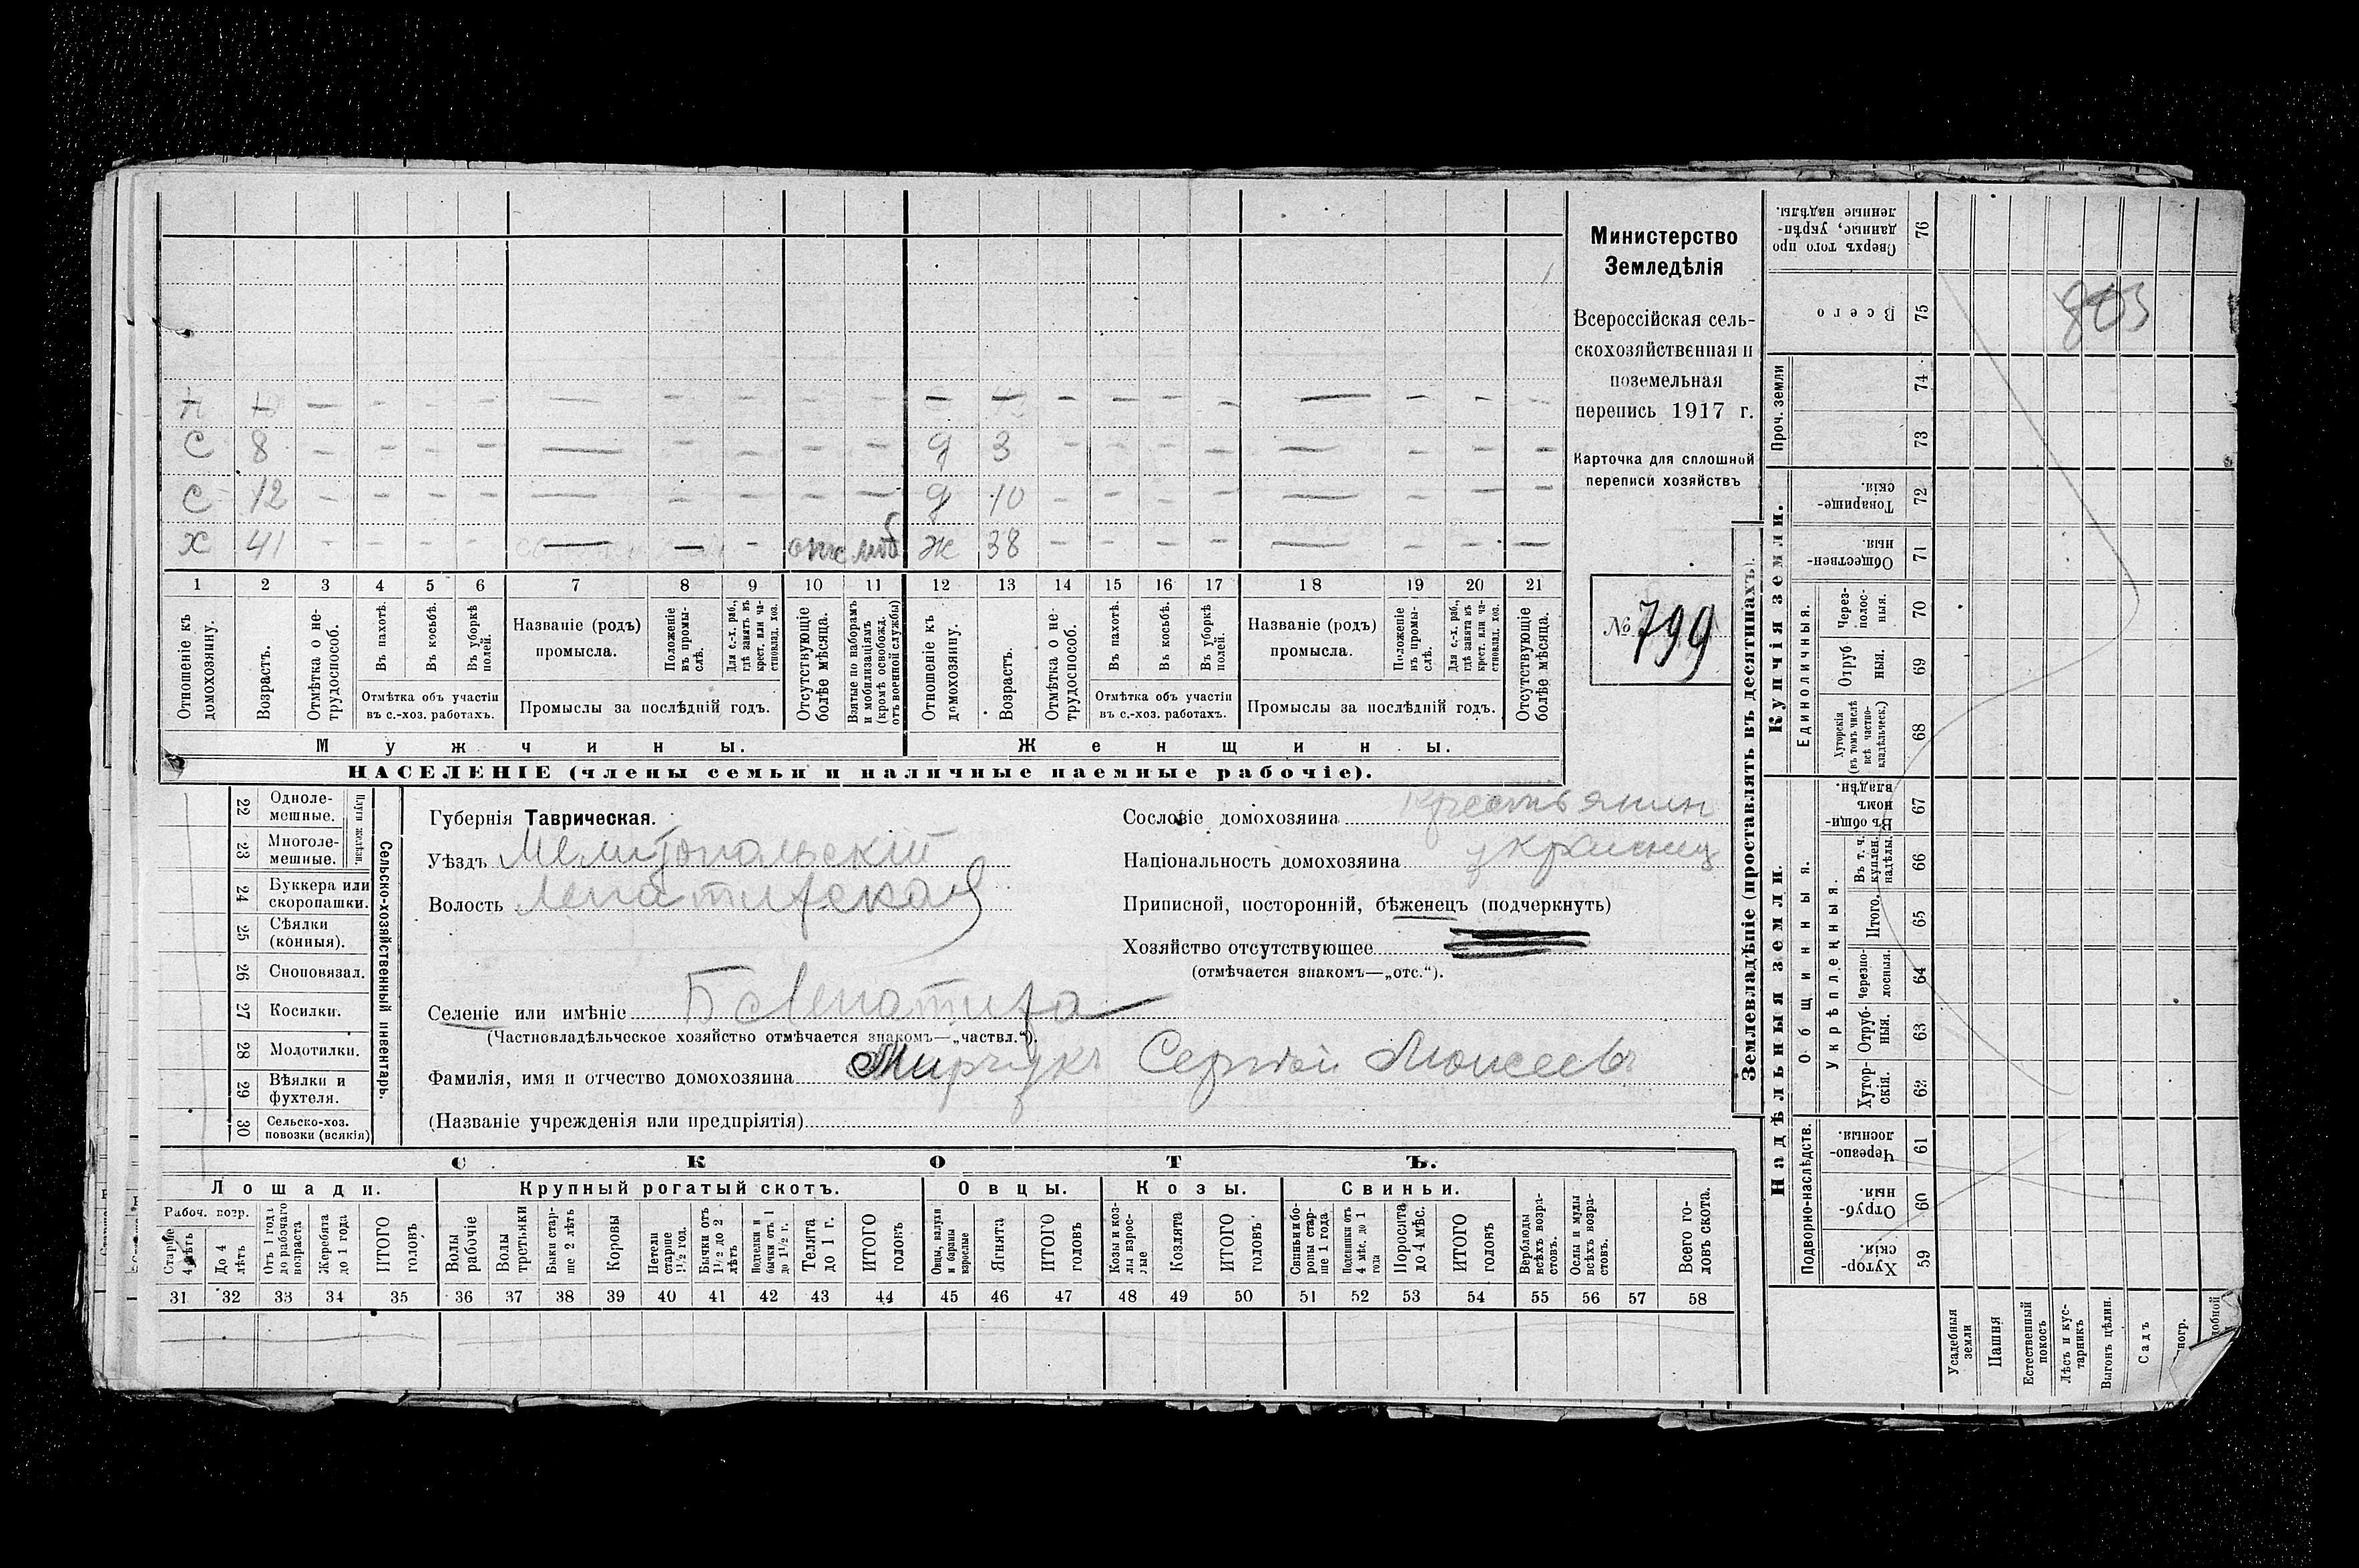 Министерство
Земледѣлія
Всероссійская сель-
скохозяйственная и
поземельная
перепись 1917 г.
Карточка для сплошной
переписи хозяйствъ
№ 799
803
С 8 — — — — — — — — — д 3 — — — — — — — —
С 12 — — — — — — — — — д 10 — — — — — — — —
Х 41 — — — — — — — моб Ж 38 — — — — — — — —
1 2 3 4 5 6 7 8 9 10 11 12 13 14 15 16 17 18 19 20 21
Отношеніе къ домохозяину.
Возрастъ.
Отмѣтка о не-трудоспособ.
Въ пахотѣ.
Въ косьбѣ.
Въ уборкѣ полей.
Отмѣтка объ участіи
въ с.-хоз. работахъ.
Названіе (родъ)
промысла.
Положеніе въ промы-слѣ.
Для с.-х. раб., гдѣ занятъ въ крест. или ча-стновлад. хоз.
Промыслы за послѣдній годъ.
Отсутствующіе болѣе мѣсяца.
Взятые по наборамъ и мобилизаціямъ (кромѣ освобожд. отъ военной службы)
Отношеніе къ домохозяину.
Возрастъ.
Отмѣтка о не-трудоспособ.
Въ пахотѣ.
Въ косьбѣ.
Въ уборкѣ полей.
Отмѣтка объ участіи
въ с.-хоз. работахъ.
Названіе (родъ)
промысла.
Положеніе въ промы-слѣ.
Для с.-х. раб., гдѣ занята въ крест. или ча-стновлад. хоз.
Промыслы за послѣдній годъ.
Отсутствующіе болѣе мѣсяца.
Мужчины.
Женщины.
НАСЕЛЕНІЕ (члены семьи и наличные наемные рабочіе).
Сельско-хозяйственный инвентарь.
Плуги желѣзн.
22 Одноле-мешные.
23 Многоле-мешные.
24 Буккера или скоропашки.
25 Сѣялки (конныя).
26 Сноповязал.
27 Косилки.
28 Молотилки.
29 Вѣялки и фухтеля.
30 Сельско-хоз. повозки (всякія)
Губернія Таврическая.
Уѣздъ Мелитопольскій
Волость Лепатихская
Селеніе или имѣніе Б Лепатиха
(Частновладѣльческое хозяйство отмѣчается знакомъ—„частвл.“).
Фамилія, имя и отчество домохозяина Мирчукъ Сергѣй Моисеевъ
(Названіе учрежденія или предпріятія)
Сословіе домохозяина крестьянин
Національность домохозяина украинец
Приписной, посторонній, бѣженецъ (подчеркнуть)
Хозяйство отсутствующее
(отмѣчается знакомъ—„отс.“).
СКОТЪ.
Лошади.
Крупный рогатый скотъ.
Овцы.
Козы.
Свиньи.
Рабоч. возр.
Старше 4 лѣтъ
До 4 лѣтъ
Отъ 1 года до рабочаго возраста
Жеребята до 1 года
ИТОГО головъ
Волы рабочіе
Волы третьяки
Быки стар-ше 2 лѣтъ
Коровы
Нетели старше 1½ год.
Бычки отъ 1½ до 2 лѣтъ
Подтелки и бычки отъ 1 до 1½ г.
Телята до 1 г.
ИТОГО головъ
Овцы, валухи и бараны взрослые
Ягнята
ИТОГО головъ
Козы и коз-лы взрос-лые
Козлята
ИТОГО головъ
Свиньи и бо-ровы стар-ше 1 года
Подсвинки отъ 4 мѣс. до 1 года
Поросята до 4 мѣс.
ИТОГО головъ
Верблюды всѣхъ возра-стовъ.
Ослы и мулы всѣхъ возра-стовъ.
Всего го-ловъ скота.
31 32 33 34 35 36 37 38 39 40 41 42 43 44 45 46 47 48 49 50 51 52 53 54 55 56 57 58
Землевладѣніе (проставлять въ десятинахъ).
Надѣльныя земли.
Купчія земли.
Проч. земли
Подворно-наслѣдств.
Общинныя.
Укрѣпленныя.
Единоличныя.
Сверхъ того про-данные, укрѣп-ленные надѣлы. 76
Всего 75
74
73
Товарище-скія. 72
Обществен-ныя. 71
Через-полос-ныя. 70
Отруб-ныя. 69
Хуторскія (въ томъ числѣ всѣ частно-владѣльческ.) 68
Въ общи-номъ владѣн. 67
Въ т. ч. куплен. надѣлы. 66
Итого. 65
Черезпо-лосныя. 64
Отруб-ныя. 63
Хутор-скія. 62
Черезпо-лосныя. 61
Отруб-ныя. 60
Хутор-скія. 59
Усадебныя земли
Пашня
Естественный покосъ
Лѣсъ и кус-тарникъ
Выгонъ цѣлин.
Садъ